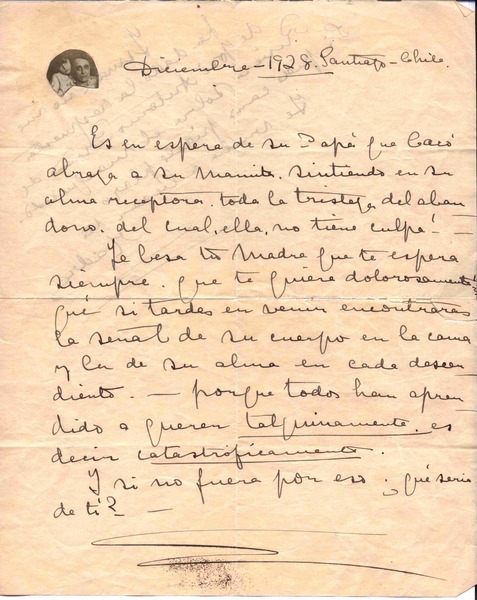 Diciembre - 1928. Santiago - Chile.
Es en espera de su Papá que Cacó
abraza a su Mamita. sintiendo en su
alma receptora. toda la tristeza del aban
dono. del cual, ella, no tiene culpá!
Te besa tú Madre que te espera
siempre. que te quiere dolorosamente
qué si tardes en venir encontraras
la señal de su cuerpo en la cama
y la de su alma en cada descen
diente. — porque todos han apren
dido a querer talquinamente. es
decir catastróficamente.
Y si no fuera por eso ¿qué seria
de tí? —